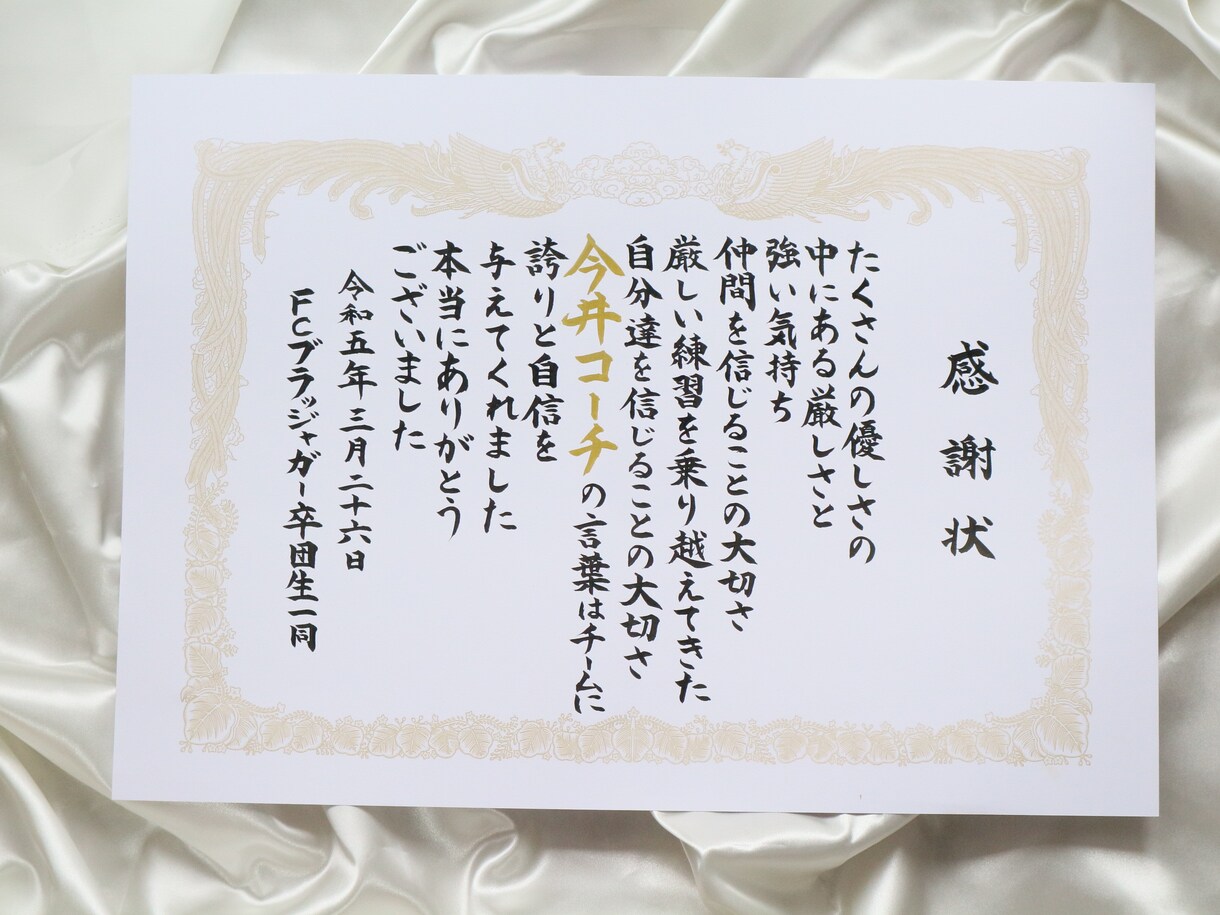 感謝状
たくさんの優しさの
中にある厳しさと
強い気持ち
仲間を信じることの大切さ
厳しい練習を乗り越えてきた
自分達を信じることの大切さ
今井コーチの言葉はチームに
誇りと自信を
与えてくれました
本当にありがとう
ございました
令和五年三月二十六日
FCブラッジャガー卒団生一同